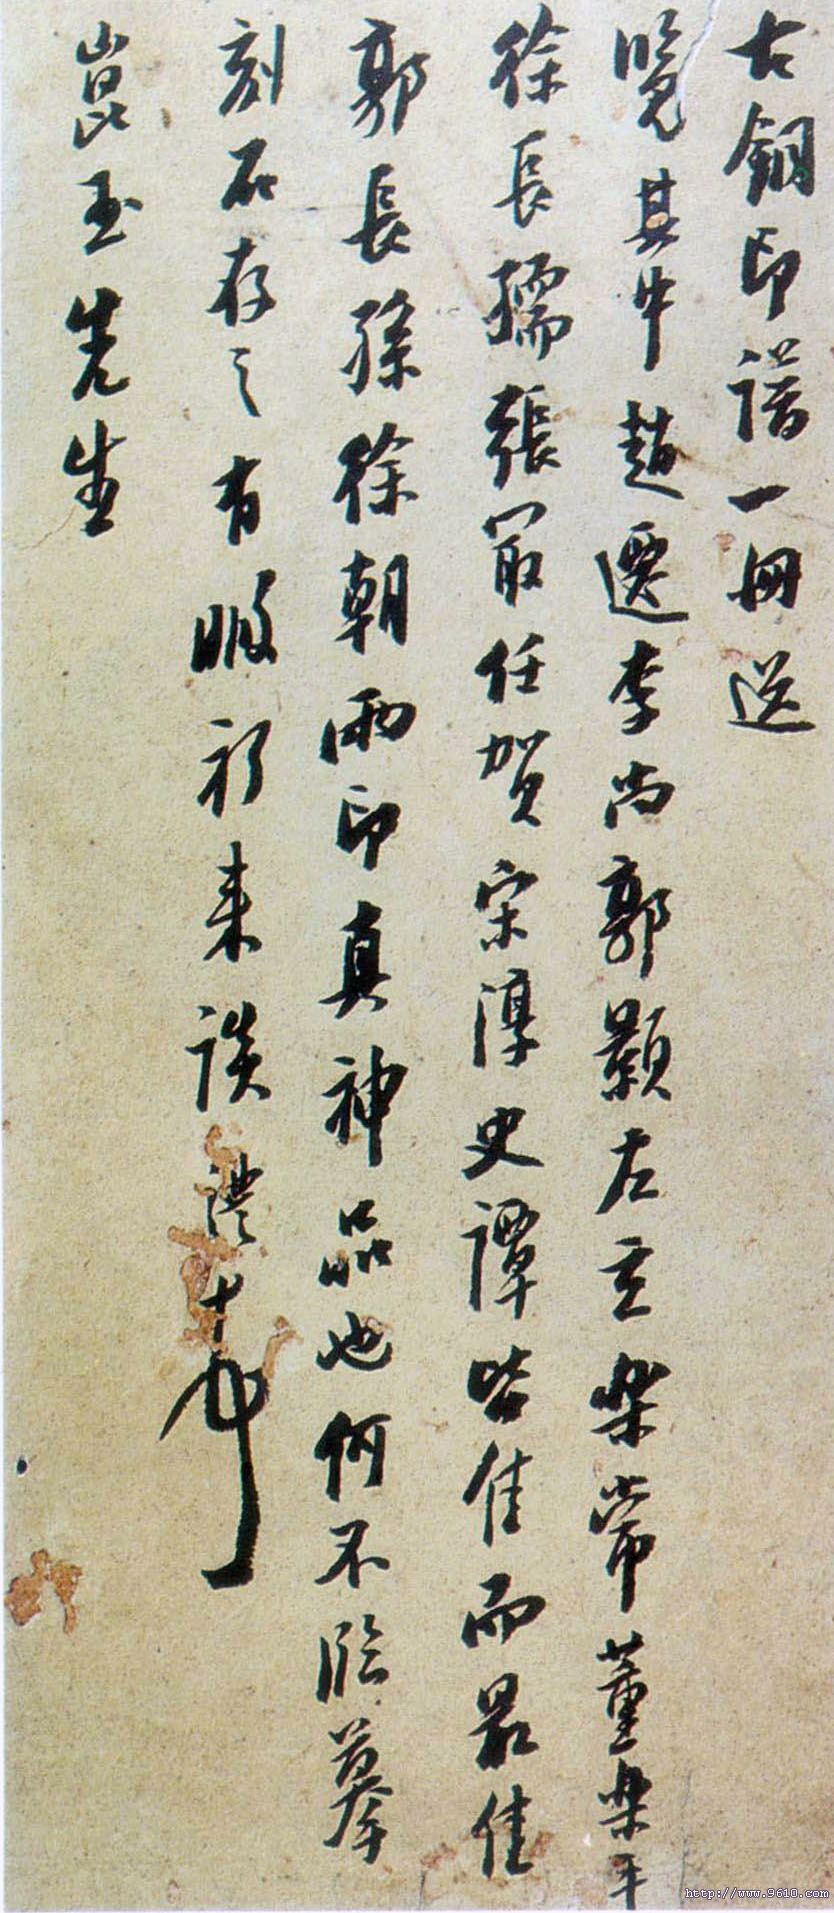 古銅印譜一冊送
覽其中趙遷李尚郭顥左玄樂常董樂平
徐長孺張冣任賀宋淳史譚皆佳而最佳
郭長孫徐朝兩印真神品也何不臨摹
刻石存之有暇祈來談澧十
崑玉先生
http://www.9610.com